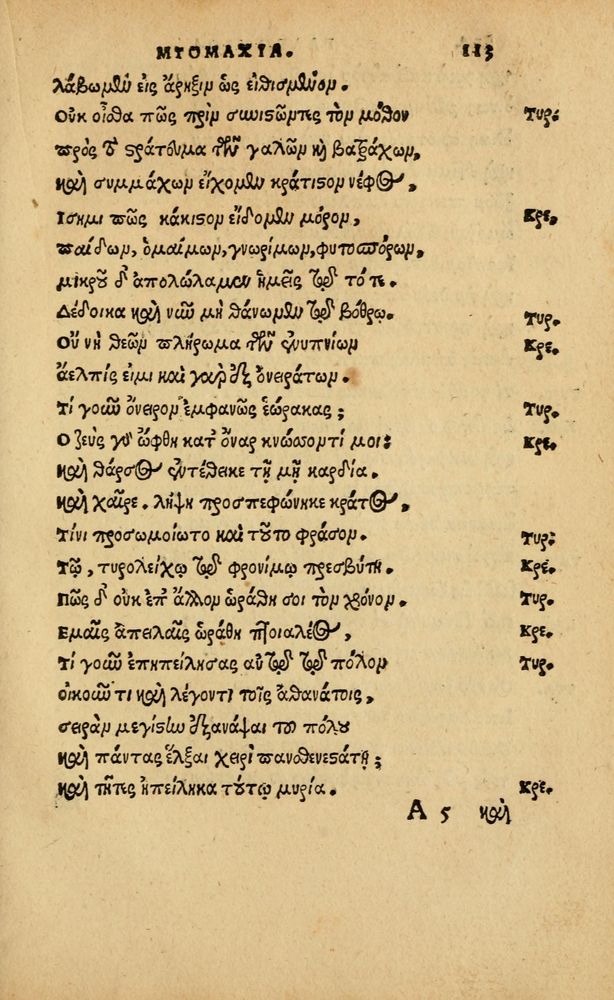 ΜΥΟΜΑΧΙΑ. 113
λάβωμεν εἰς ἄρηξιν ὡς εἰθισμένον.
Οὐκ οἶσθα πῶς πρὶν συνιστῶντες τὸν μόθον Τυρ.
πρὸς τὸ στράτευμα τῶν γαλῶν κỳ βατράχων,
καὶ συμμάχων εἴχομεν κράτιστον νέφος,
Ισημι πῶς κάκιστον εἴδομεν μόρον, Κρε.
παίδων, ὁμαίμων, γνωρίμων, φυτοσπόρων,
μικροῦ δ' ἀπολώλαμεν ἡμεῖς ἐν τότε.
Δέδοικα καὶ νῶν μὴ θάνωμεν ἐν βόθρῳ. Τυρ.
Οὔ νὴ θεῶν πλήρωμα τῶν ἐνυπνίων Κρε.
ἄελπίς εἰμι καὶ γὰρ ἐξ ὀνειράτων.
Τί γοῶ ὄνειρον ἐμφανῶς ἑώρακας; Τυρ.
Ο ζεὺς γὸ ὤφθη κατ' ὄναρ κνώσσοντί μοι: Κρε.
καὶ θάρσος ἐντέθεικε τῇ μῇ καρδίᾳ.
καὶ χαῖρε. λήψῃ προσπεφώνηκε κράτος,
Τίνι προσωμοίωτο καὶ τοῦτο φράσον. Τυρ:
Τῷ, τυρολείχῳ ἐν φρονίμῳ πρεσβύτῃ. Κρε.
Πῶς δ' οὐκ ἐπ' ἄλλον ὡράθη σοι τὸν χρόνον. Τυρ.
Εμαῖς ἀπειλαῖς ὡράθη πτοιαλέος, Κρε.
Τί γοῶ ἐπηπείλησας αὐτὸν ἐν πόλον Τυρ.
οἰκοῶ τι καὶ λέγοντι τοῖς ἀθανάτοις,
σειρὰν μεγίστω ἐξανάψαι τοῦ πόλου
καὶ πάντας ἕλξαι χειρὶ πανσθενεστάτῃ;
καὶ τῆτες ἠπείληκα τούτῳ μυρία. Κρε.
Α 5 καὶ